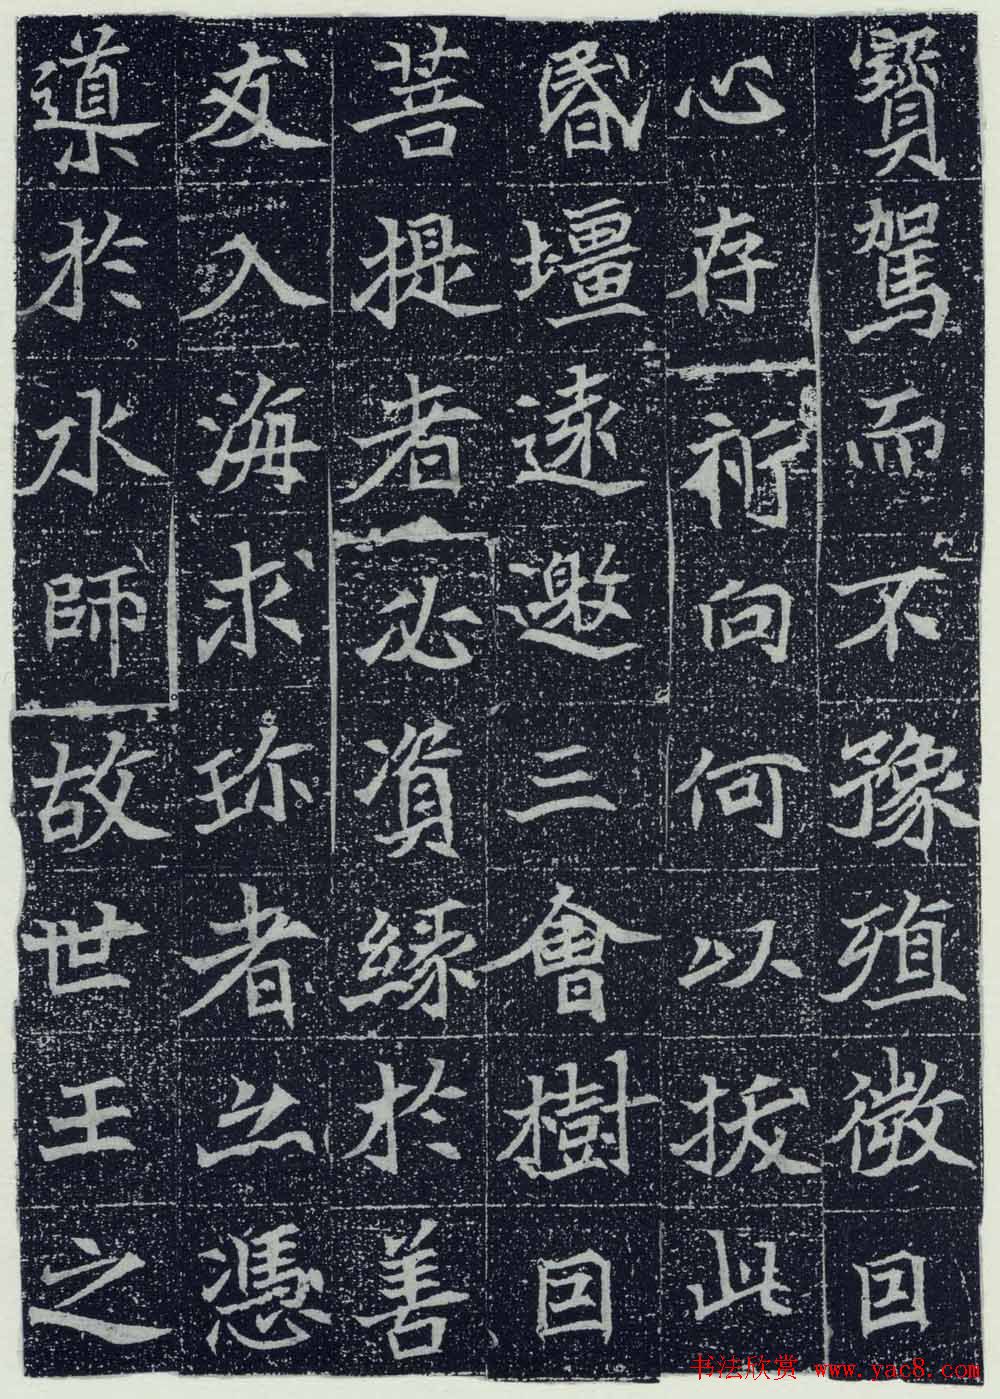 寳駕而不豫殖微因
心存祈向何以拔此
昬壃遠邀三會樹因
菩提者必資緣於善
友入海求珎者必憑
導於水師故世王之
书法欣赏 www.yac8.com